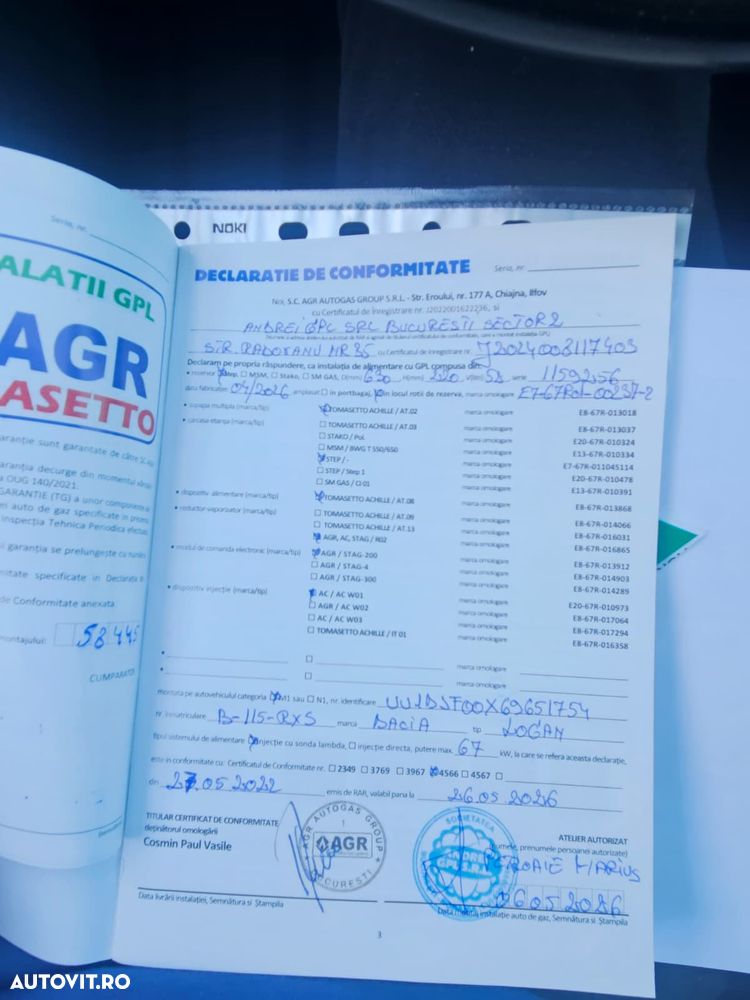 Seria, nr.
ALATII GPL
AGR
ASETTO
arantie sunt garantate de către
arantia decurge din momentul
a OUG 140/2021.
GARANTIE (TG) a unor componente
m auto de gaz specificate in
inspecția Tehnica Periodica
i garantia se prelungeste cu
mitate specificate in Declaratia
de Conformitate anexata.
montajului: 58445
CUMPARATOR
NOKI
DECLARATIE DE CONFORMITATE Seria, nr.
Noi, S.C. AGR AUTOGAS GROUP S.R.L. - Str. Eroului, nr. 177 A, Chiajna, Ilfov
cu Certificatul de înregistrare nr. J2022001622236, si
ANDREI GPL SRL BUCURESTI SECTOR 2
STR. RADOVANU NR 35 cu Certificatul de înregistrare nr. J2024003117403
Declaram pe propria răspundere, ca instalația de alimentare cu GPL compusa din:
• rezervor Step, MSM, Stako, SM GAS, D(mm) 630 H(mm) 220 V(lt) 58 serie 11592556
data fabricatiei 04/2026 amplasat in portbagaj, in locul rotii de rezerva, marca omologare E7-67R01-00237-2
• supapa multipla (marca/tip) TOMASETTO ACHILLE / AT.02 marca omologare E8-67R-013018
• carcasa etanșa (marca/tip) TOMASETTO ACHILLE / AT.03 marca omologare E8-67R-013037
STAKO / Pol. marca omologare E20-67R-010324
MSM / BWG T 550/650 marca omologare E13-67R-010334
STEP / - marca omologare E7-67R-011045114
STEP / Step 1 marca omologare E20-67R-010478
SM GAS / CI 01 marca omologare E13-67R-010391
• dispozitiv alimentare (marca/tip) TOMASETTO ACHILLE / AT.08 marca omologare E8-67R-013868
• reductor vaporizator (marca/tip) TOMASETTO ACHILLE / AT.09 marca omologare E8-67R-014066
TOMASETTO ACHILLE / AT.13 marca omologare E8-67R-016031
AGR, AC, STAG / R02 marca omologare E8-67R-016865
• modul de comanda electronic (marca/tip) AGR / STAG-200 marca omologare E8-67R-013912
AGR / STAG-4 marca omologare E8-67R-014903
AGR / STAG-300 marca omologare E8-67R-014289
• dispozitiv injecție (marca/tip) AC / AC W01 marca omologare E20-67R-010973
AGR / AC W02 marca omologare E8-67R-017064
AC / AC W03 marca omologare E8-67R-017294
TOMASETTO ACHILLE / IT 01 marca omologare E8-67R-016358
marca omologare
marca omologare
montata pe autovehiculul categoria M1 sau N1, nr. identificare UU1DJF00X69651754
nr. inmatriculare B-115-RXS marca DACIA tip LOGAN
tipul sistemului de alimentare injecție cu sonda lambda, injecție directa, putere max. 67 kW, la care se refera aceasta declaratie,
este in conformitate cu: Certificatul de Conformitate nr. 2349 3769 3967 4566 4567
din 27.05.2022 emis de RAR, valabil pana la 26.05.2026
TITULAR CERTIFICAT DE CONFORMITATE
deținătorul omologării
Cosmin Paul Vasile
AGR AUTOGAS GROUP
1
AGR
BUCURESTI
SOCIETATEA
ANDREI
GPL S.R.L.
ATELIER AUTORIZAT
(numele, prenumele persoanei autorizate)
PETROAIE MARIUS
06052026
Data livrării instalației, Semnătura si Ștampila
Data montaj instalație auto de gaz, Semnătura si Ștampila
3
AUTOVIT.RO